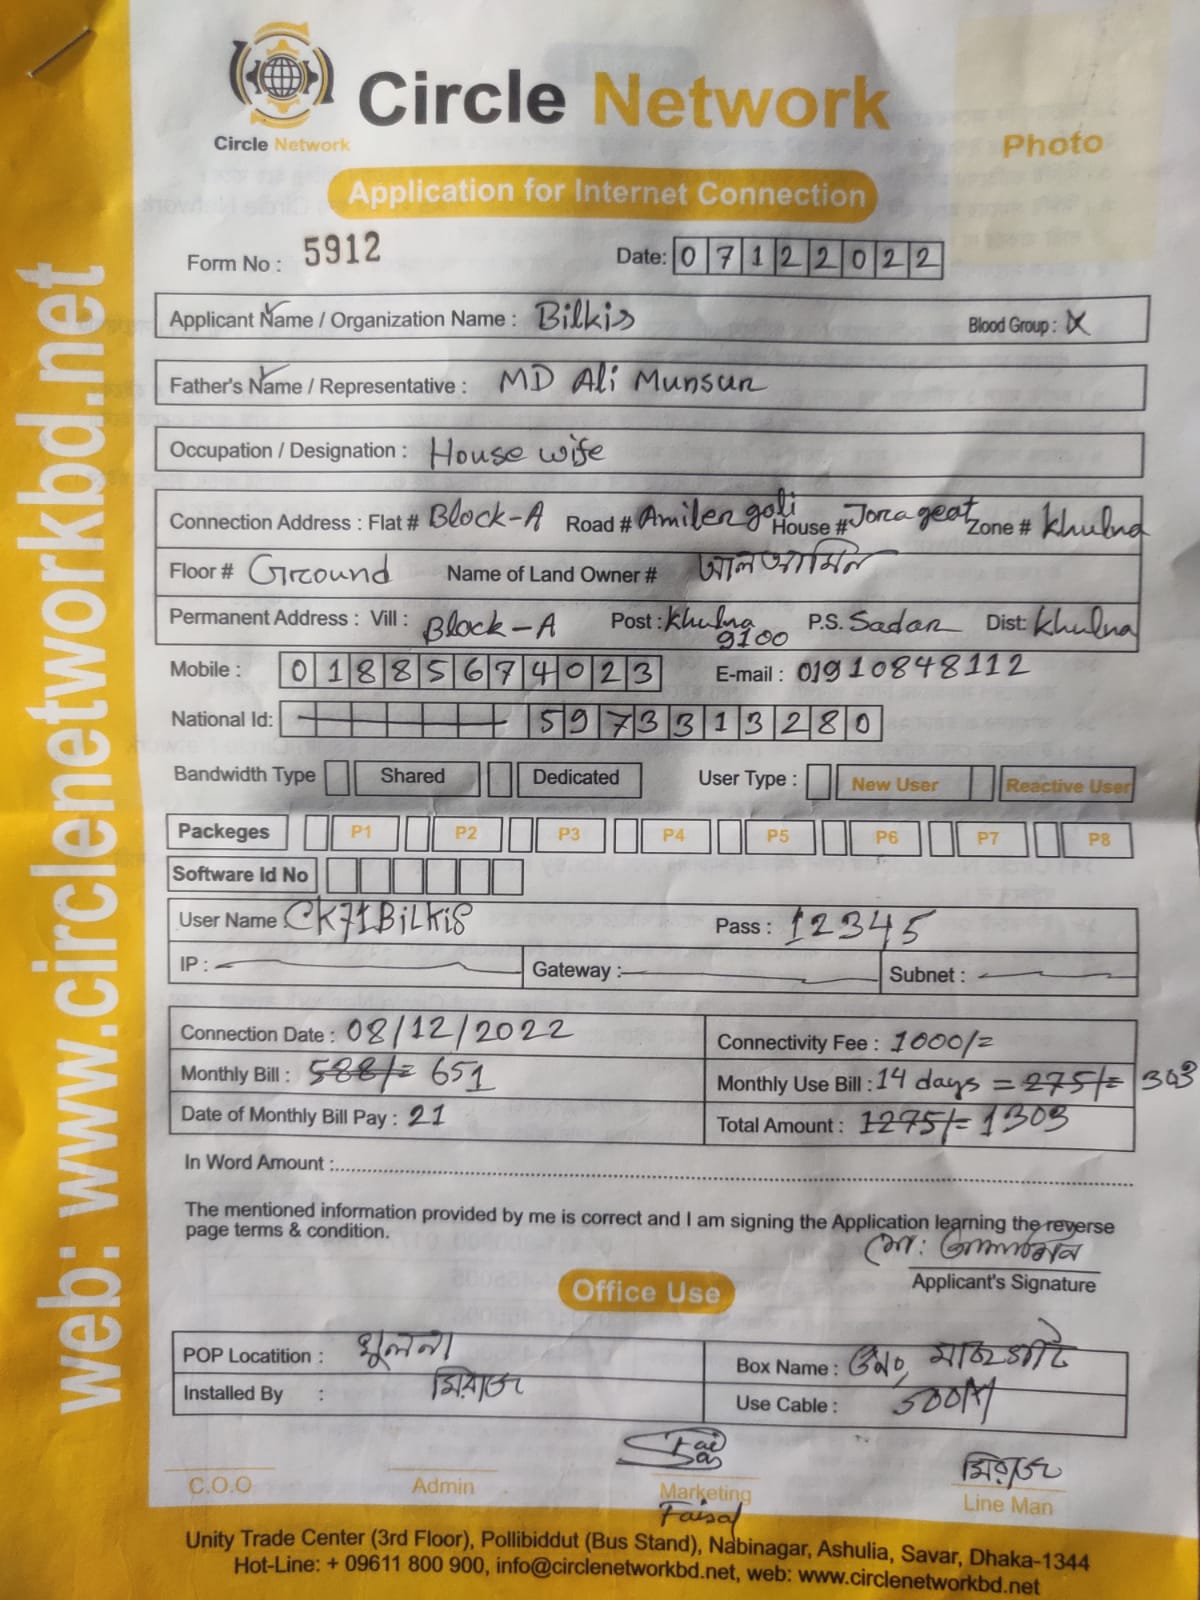 web: www.circlenetworkbd.net
Circle Network
Circle Network
Photo
Application for Internet Connection
Form No : 5912 Date: 07122022
Applicant Name / Organization Name : Bilkis Blood Group : X
Father's Name / Representative : MD Ali Munsur
Occupation / Designation : House wife
Connection Address : Flat # Block-A Road # Amiler goli House # Jorageat Zone # Khulna
Floor # Ground Name of Land Owner # আলআমিন
Permanent Address : Vill : Block-A Post : Khulna 9100 P.S. Sadar Dist: Khulna
Mobile : 01885674023 E-mail : 01910848112
National Id: 5973313280
Bandwidth Type Shared Dedicated User Type : New User Reactive User
Packeges P1 P2 P3 P4 P5 P6 P7 P8
Software Id No
User Name CK71BiLKiS Pass : 12345
IP : Gateway : Subnet :
Connection Date : 08/12/2022 Connectivity Fee : 1000/=
Monthly Bill : 588/= 651 Monthly Use Bill : 14 days = 275/= 303
Date of Monthly Bill Pay : 21 Total Amount : 1275/= 1303
In Word Amount :
The mentioned information provided by me is correct and I am signing the Application learning the reverse
page terms & condition.
মো:
Applicant's Signature
Office Use
POP Locatition : খুলনা Box Name :
Installed By : মিরাজ Use Cable : 500M
মিরাজ
C.O.O Admin Marketing Line Man
Faisal
Unity Trade Center (3rd Floor), Pollibiddut (Bus Stand), Nabinagar, Ashulia, Savar, Dhaka-1344
Hot-Line: + 09611 800 900, info@circlenetworkbd.net, web: www.circlenetworkbd.net